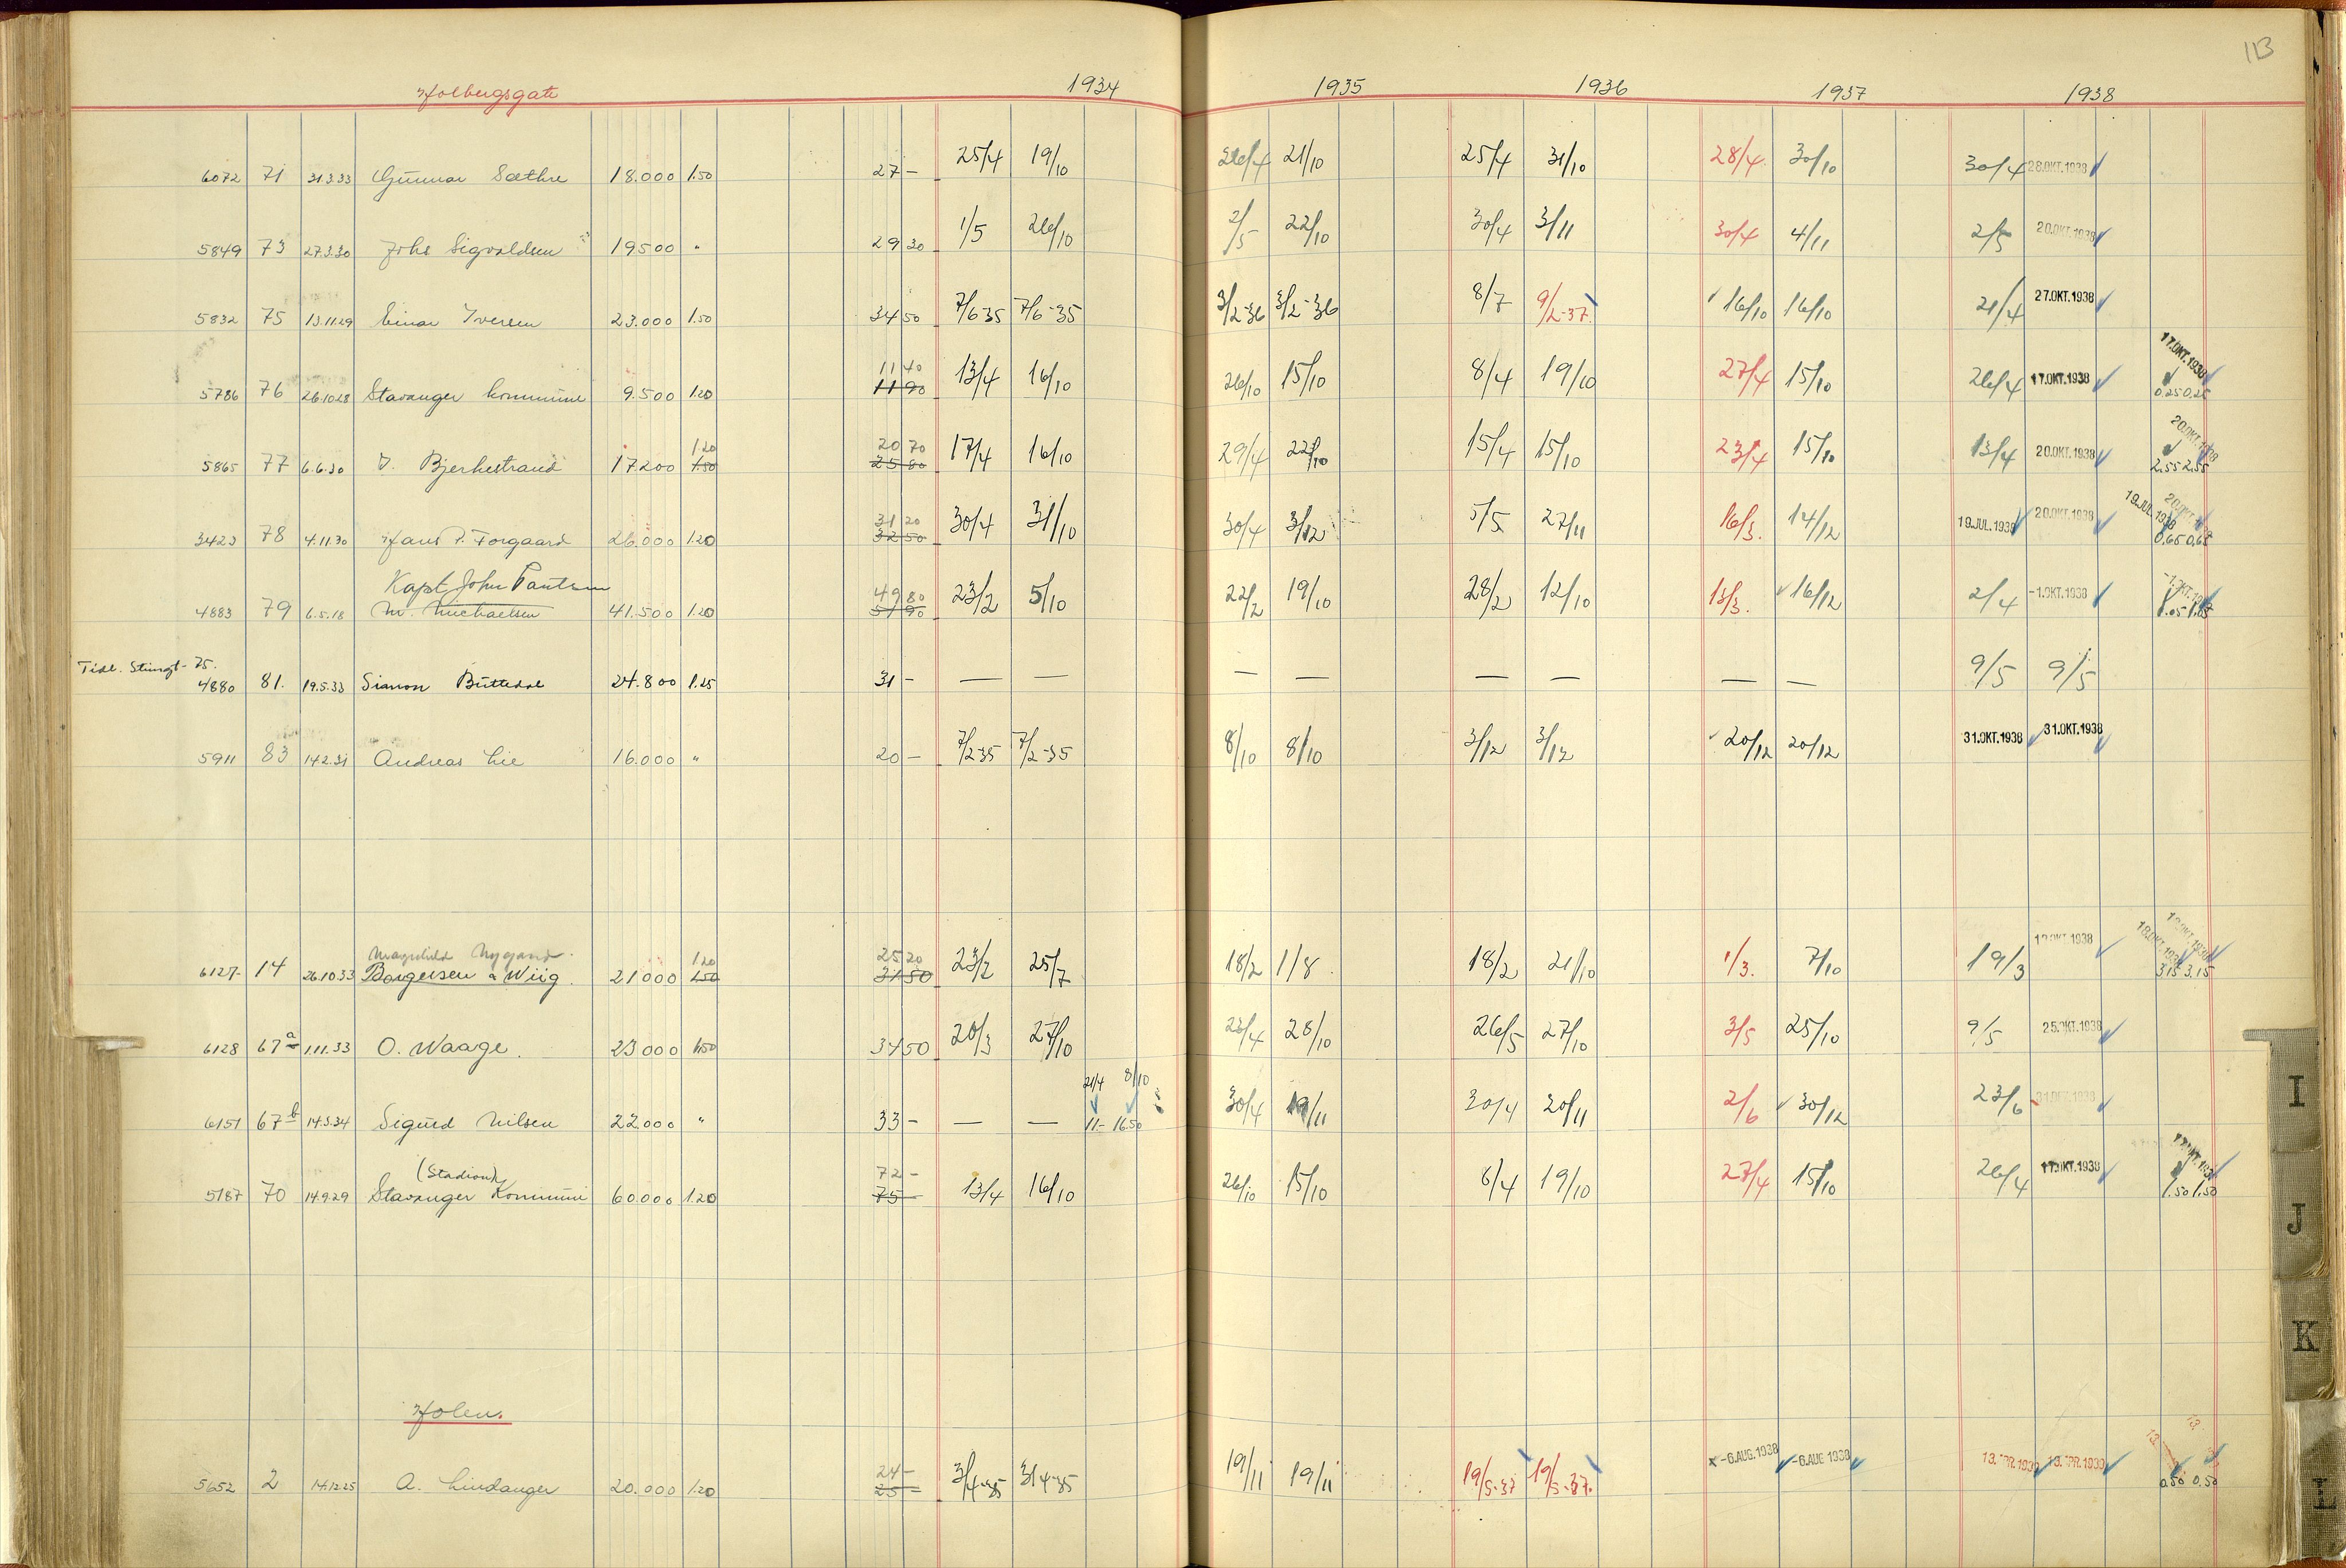 113
Holbergsgate 1934 1935 1936 1937 1938
6072 71 31.3.33 Gunnar Sæthre 18.000 1.50 27 – 25/4 19/10 26/4 21/10 25/4 31/10 28/4. 30/10 30/4 28.OKT.1938
5849 73 27.3.30 Johs Sigvaldsen 19500 " 29 20 1/5 26/10 2/5 22/10 30/4 3/11 30/4 4/11 2/5 20.OKT.1938
5832 75 13.11.29 Einar Iversen 23.000 1.50 34 50 7/6-35 7/6-35 3/2-36 3/2-36 8/7 9/2-37. 16/10 16/10 21/4 27.OKT.1938
11 40 17.OKT.1938
5786 76 26.10.28 Stavanger kommune 9.500 1.20 11 90 13/4 16/10 26/10 15/10 8/4 19/10 27/4 15/10 26/4 17.OKT.1938 0.25 0.25
1.20 20 70 20.OKT.1938
5865 77 6.6.30 J. Bjerkestrand 17200 1.50 25 80 17/4 16/10 29/4 22/10 15/4 15/10 23/4 15/10 13/4 20.OKT.1938 2.55 2.55
31 20 19.JUL.1938
3423 78 4.11.30 Hans P. Forgaard 26.000 1.20 32 50 30/4 31/10 30/4 3/12 5/5 27/11 16/3. 14/12 19.JUL.1938 20.OKT.1938 0.65 0.65
Kapt. John Pantsen 49 80
4883 79 6.5.18 M. Michaelsen 41.500 1.20 51 90 23/2 5/10 22/2 19/10 28/2 12/10 13/3. 16/12 2/4 -1.OKT.1938 1.05 1.05
Tidl. Stingt- 75.
4880 81. 19.5.33 Simon 24.800 1.25 31 – — — — — — — — — 9/5 9/5
5911 83 14.2.31 Andreas Lie 16.000 " 20 – 7/2-35 7/2-35 8/10 8/10 3/12 3/12 20/12 20/12 31.OKT.1938 31.OKT.1938
Magnhild Nygaard 1.20 25 20
6127 14 26.10.33 Børgersen & Wiig. 21000 1.50 31 50 23/2 25/7 18/2 1/8. 18/2 21/10 1/3. 7/10 19/3 3.15 3.15
6128 67a 1.11.33 O. Waage. 23.000 1.50 34 50 20/3 27/10 23/4 28/10 26/5 27/10 3/5 25/10 9/5 25.OKT.1938
21/4 8/10
6151 67b 14.3.34 Sigurd Nilsen 22.000 " 33 – — — 11.- 16.50 30/4 19/11 30/4 20/11 2/6 30/12 23/6 31.OKT.1938
(Stadion) 72 –
5187 70 14.9.29 Stavanger Kommune 60.000 1.20 75 – 13/4 16/10 26/10 15/10 8/4 19/10 27/4 15/10 26/4 17.OKT.1938 1.50 1.50
Holen.
24 –
5652 2 14.12.25 A. Lindanger 20.000 1.20 25 – 3/4-35 3/4-35 19/11 19/11 19/5-37 19/5-37. -6.AUG.1938 -6.AUG.1938 13.APR.1939 13.APR.1939 0.50 0.50
I
J
K
L